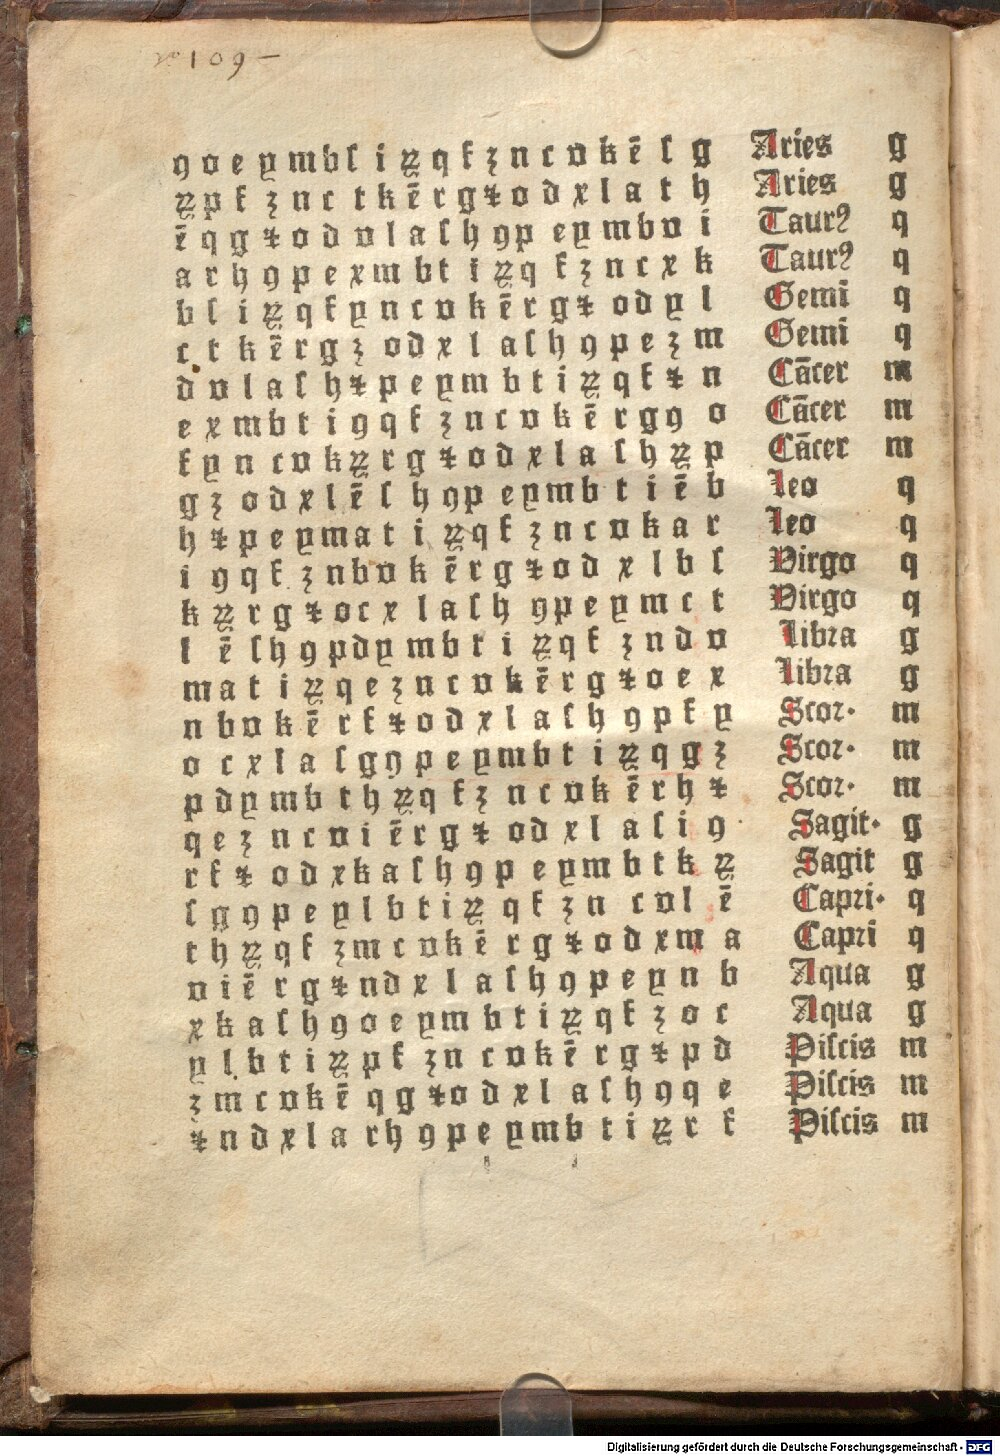 109 –
9 o e y m b ſ i ꝝ q f z n c v k ē ſ g Aries g
ꝝ p f z n c t k ē r g ⁊ o d x l a t h Aries g
ē q g ⁊ o d v l a ſ h 9 p e y m b v i Taurꝰ q
a r h 9 p e x m b t i ꝝ q f z n c x k Taurꝰ q
b ſ i ꝝ q f y n c v k ē r g ⁊ o d y l Gemī q
c t k ē r g z o d x l a ſ h 9 p e z m Gemī q
d v l a ſ h ⁊ p e y m b t i ꝝ q f ⁊ n Cācer m
e x m b t i 9 q f z n c v k ē r g 9 o Cācer m
f y n c v k ꝝ r g ⁊ o d x l a ſ h ꝝ p Cācer m
g z o d x l ē ſ h 9 p e y m b t i ē b Leo q
h ⁊ p e y m a t i ꝝ q f z n c v k a r Leo q
i 9 q f z n b v k ē r g ⁊ o d x l b ſ Virgo q
k ꝝ r g ⁊ o c x l a ſ h 9 p e y m c t Virgo q
l ē ſ h 9 p d y m b t i ꝝ q f z n d v Libra g
m a t i ꝝ q e z n c v k ē r g ⁊ o e x Libra g
n b v k ē r f ⁊ o d x l a ſ h 9 p f y Scor. m
o c x l a ſ g 9 p e y m b t i ꝝ q g z Scor. m
p d y m b t h ꝝ q f z n c v k ē r h ⁊ Scor. m
q e z n c v i ē r g ⁊ o d x l a ſ i 9 Sagit. g
r f ⁊ o d x k a ſ h 9 p e y m b t k ꝝ Sagit g
ſ g 9 p e y l b t i ꝝ q f z n c v l ē Capri. q
t h ꝝ q f z m c v k ē r g ⁊ o d x m a Capri q
v i ē r g ⁊ n d x l a ſ h 9 p e y n b Aqua g
x k a ſ h 9 o e y m b t i ꝝ q f z o c Aqua g
y l b t i ꝝ p f z n c v k ē r g ⁊ p d Piſcis m
z m c v k ē q g ⁊ o d x l a ſ h 9 q e Piſcis m
⁊ n d x l a r h 9 p e y m b t i ꝝ r f Piſcis m
Digitalisierung gefördert durch die Deutsche Forschungsgemeinschaft - DFG